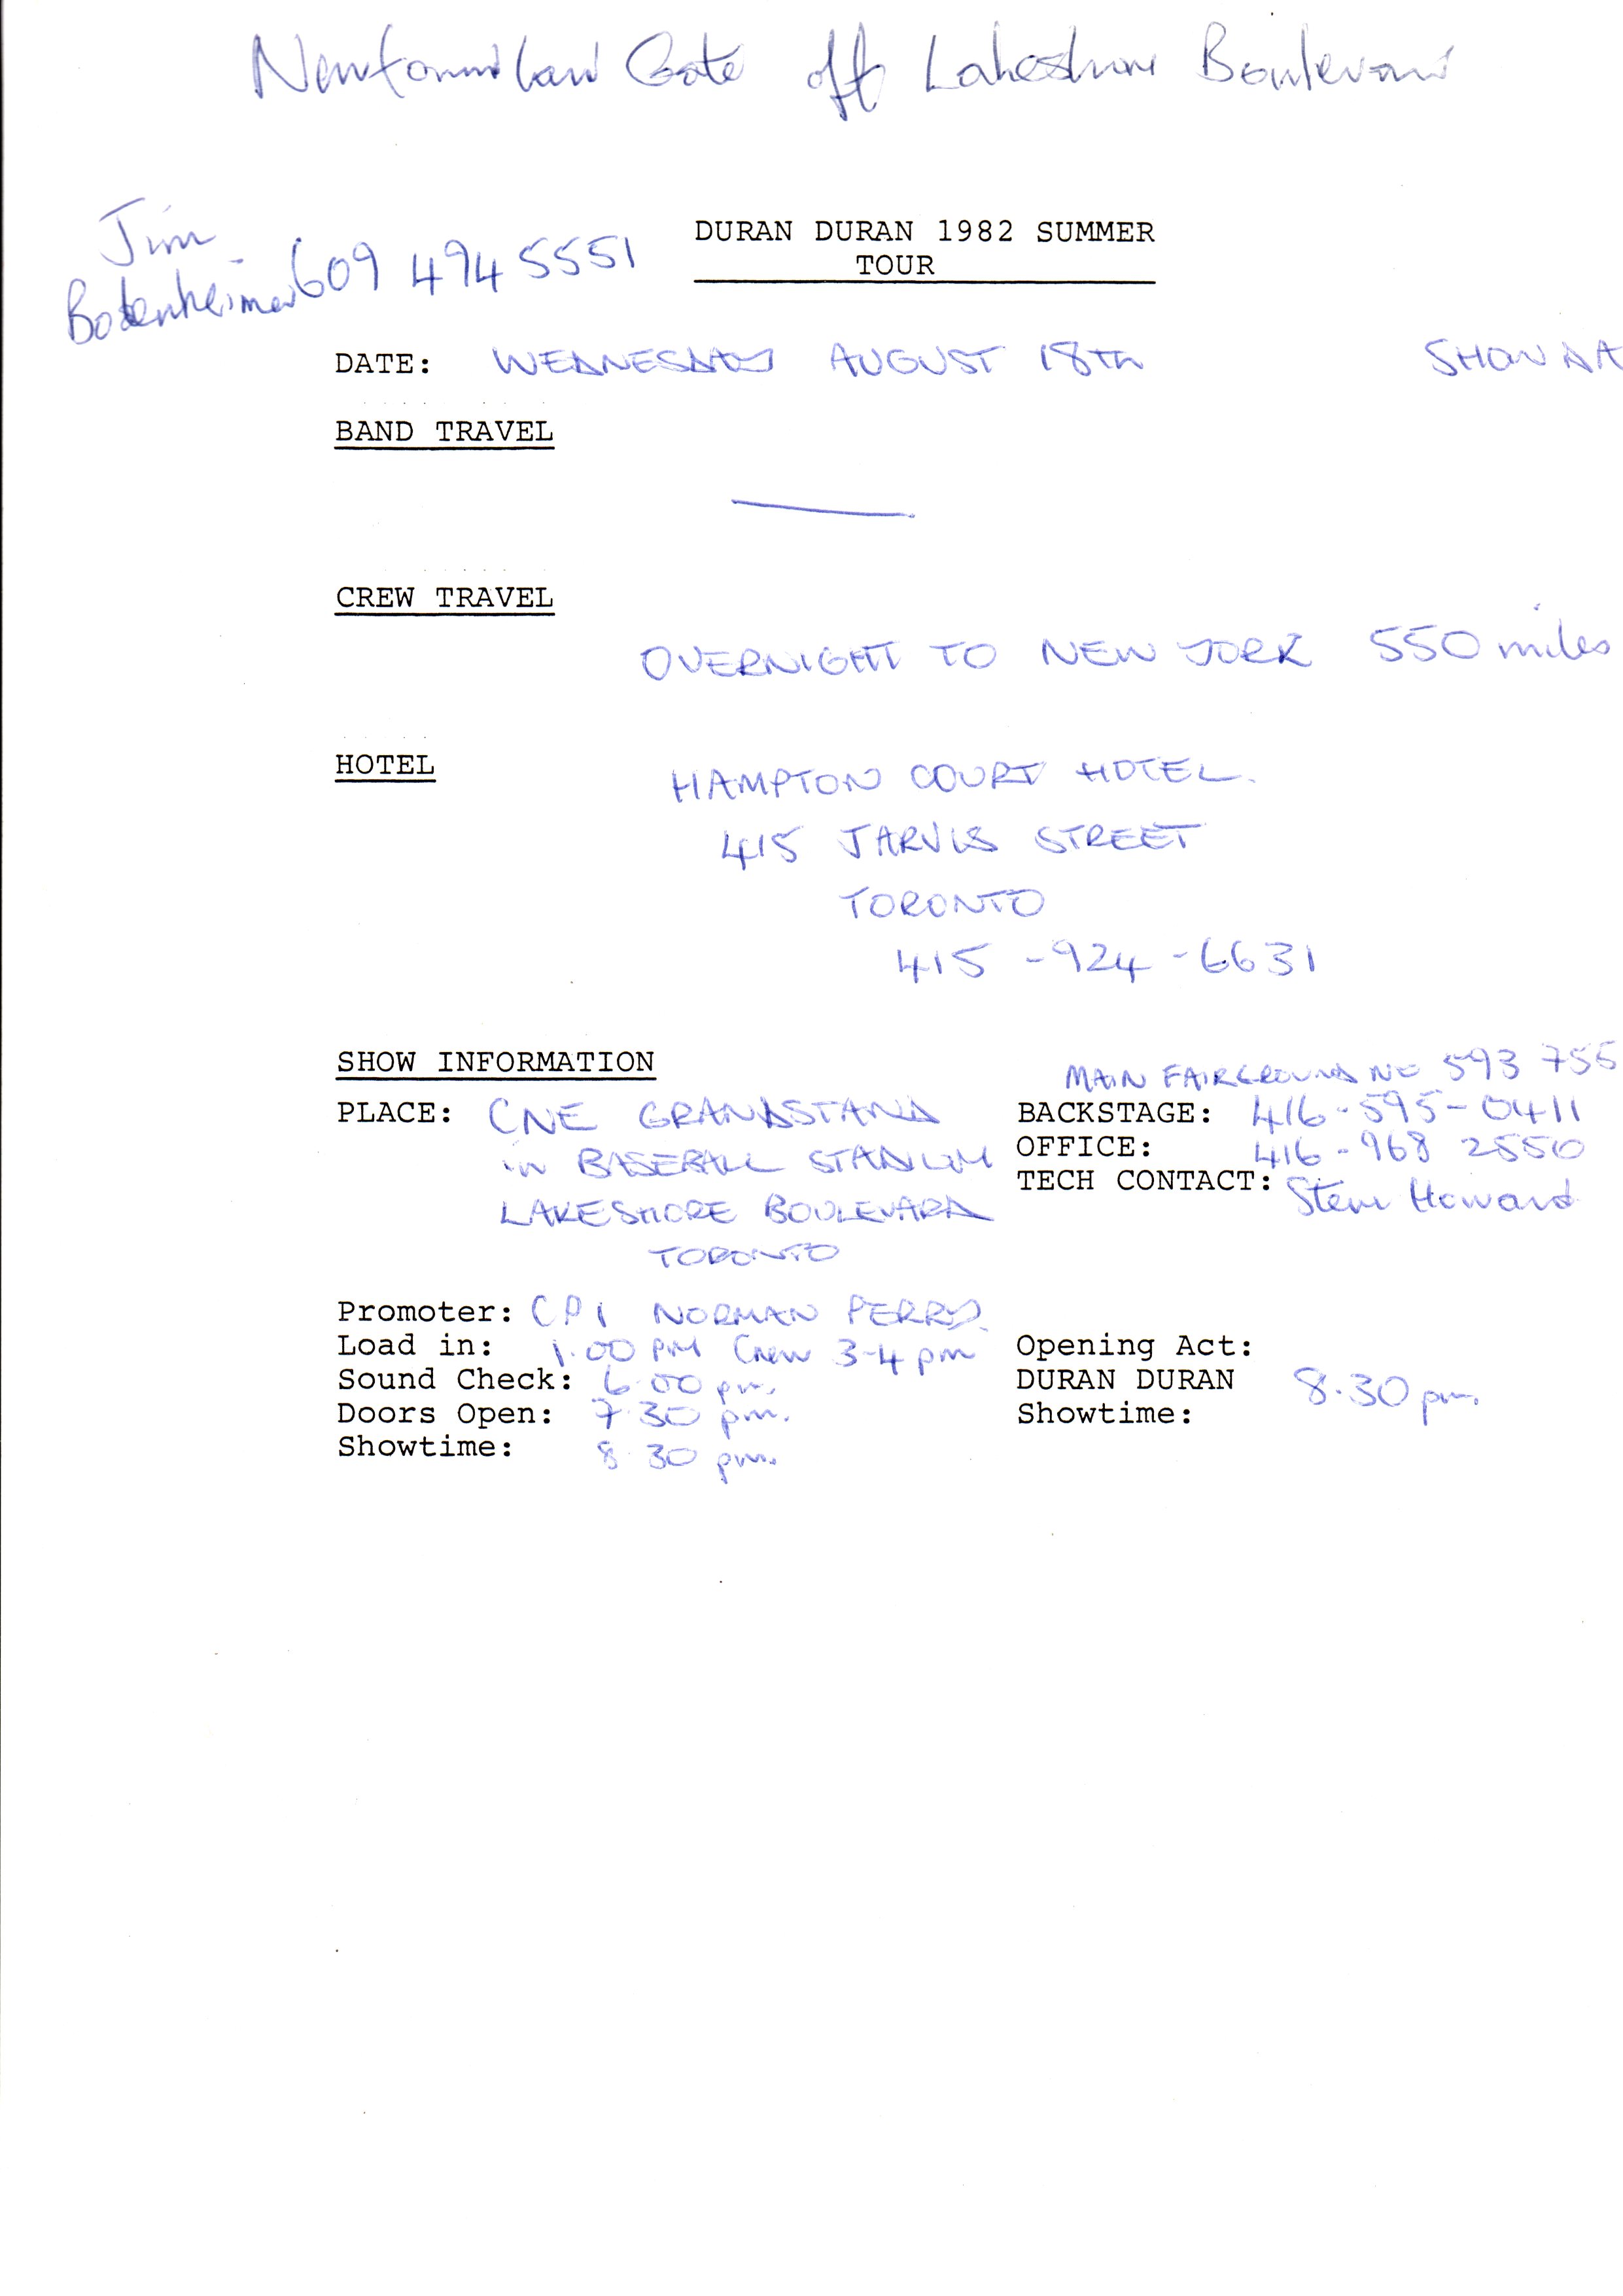 Newfoundland Gate off Lakeshore Boulevard
Jim
Bodenheimer 609 494 5551
DURAN DURAN 1982 SUMMER
TOUR
DATE: WEDNESDAY AUGUST 18TH SHOW DA
BAND TRAVEL
CREW TRAVEL
OVERNIGHT TO NEW YORK 550 miles
HOTEL
HAMPTON COURT HOTEL.
415 JARVIS STREET
TORONTO
415-924-6631
SHOW INFORMATION
MAIN FAIRGROUND NO 593 755
PLACE: CNE GRANDSTAND BACKSTAGE: 416-595-0411
in BASEBALL STADIUM OFFICE: 416-968 2550
TECH CONTACT: Steve Howard
LAKESHORE BOULEVARD
TORONTO
Promoter: CPI NORMAN PERRY.
Load in: 1.00 PM Crew 3-4 pm Opening Act:
Sound Check: 6.00 pm. DURAN DURAN 8.30 pm.
Doors Open: 7.30 pm. Showtime:
Showtime: 8.30 pm.